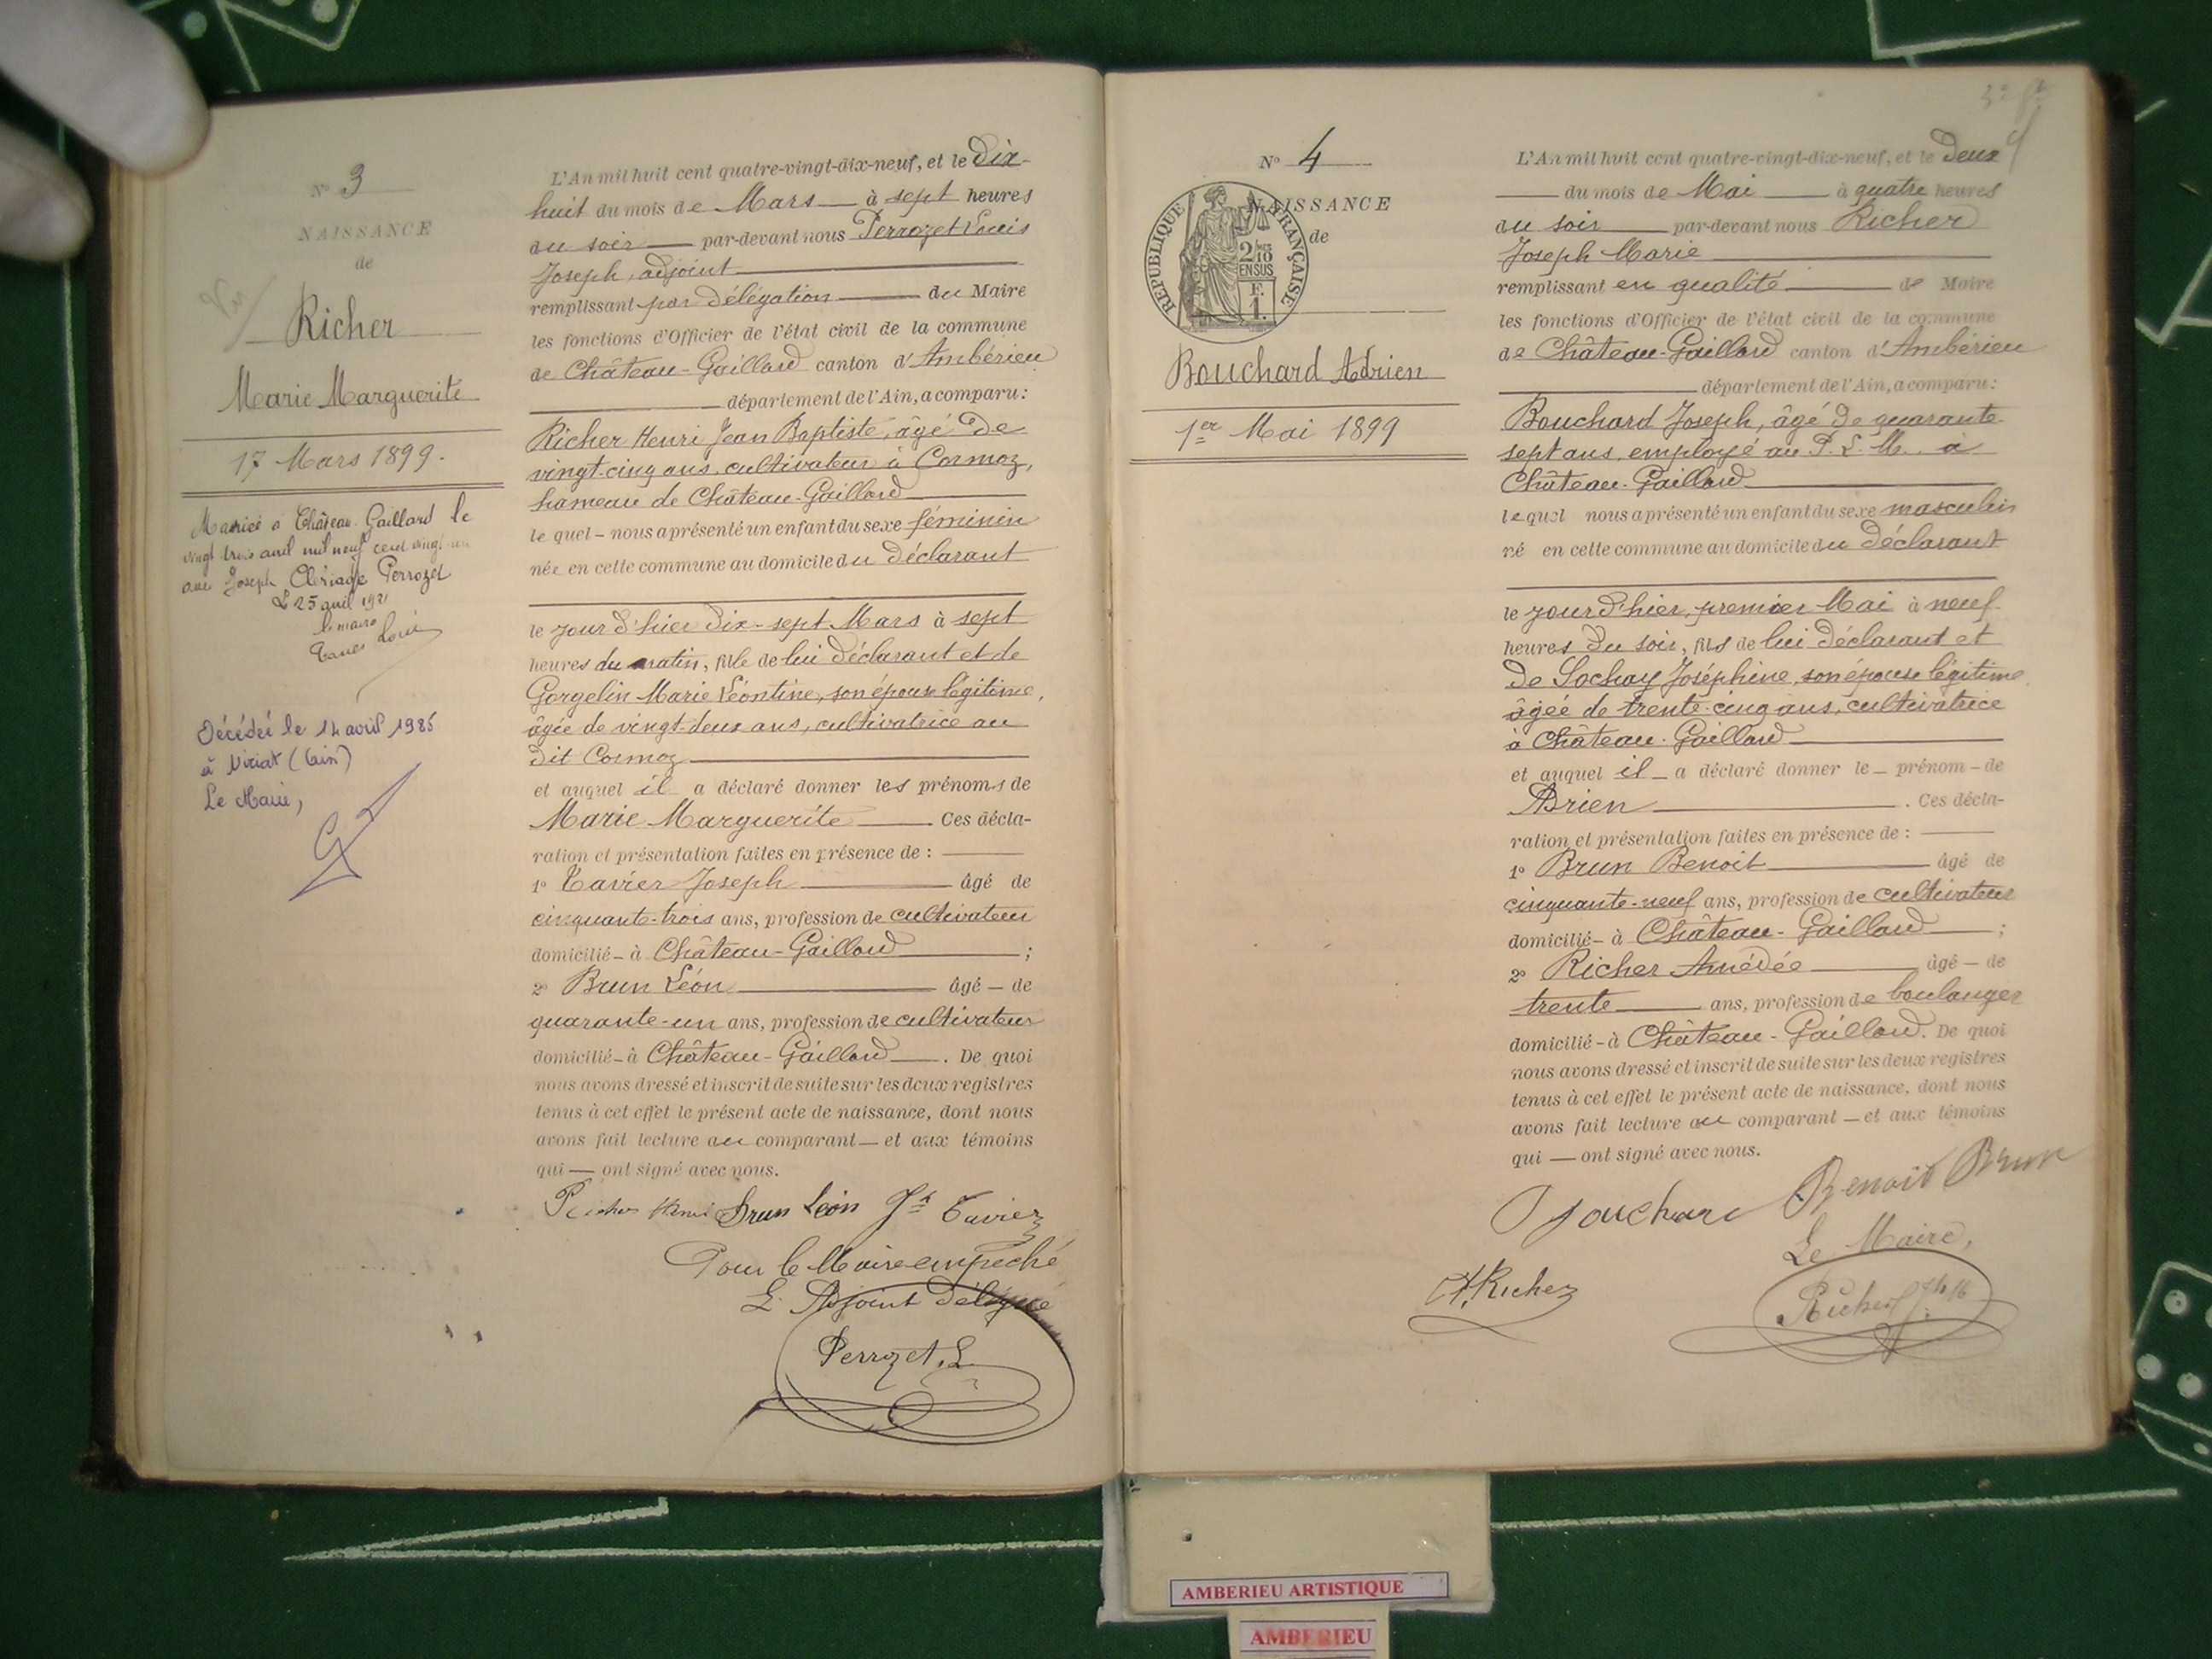 N° 3
NAISSANCE
de
Vu
Richer
Marie Marguerite
17 Mars 1899.
Mariée à Château-Gaillard le
vingt trois avril mil neuf cent vingt un
avec Joseph Perrozet
Le 25 avril 1921
le maire
Louis
Décédée le 14 avril 1985
à Viriat (Ain)
Le Maire,
L'An mil huit cent quatre-vingt-dix-neuf, et le Dix-
huit du mois de Mars à sept heures
du soir par-devant nous Perrozet Louis
Joseph, adjoint
remplissant par délégation du Maire
les fonctions d'Officier de l'état civil de la commune
de Château-Gaillard canton d'Ambérieu
département de l'Ain, a comparu:
Richer Henri Jean Baptiste, âgé de
vingt-cinq ans, cultivateur à Cormoz,
hameau de Château-Gaillard
le quel - nous a présenté un enfant du sexe féminin
née en cette commune au domicile du déclarant
le jour d'hier dix-sept Mars à sept
heures du matin, fille de lui déclarant et de
Gorgelin Marie Léontine, son épouse légitime,
âgée de vingt-deux ans, cultivatrice au
dit Cormoz
et auquel il a déclaré donner les prénoms de
Marie Marguerite Ces décla-
ration et présentation faites en présence de :
1° Tavier Joseph âgé de
cinquante-trois ans, profession de cultivateur
domicilié - à Château-Gaillard ;
2° Brun Léon âgé - de
quarante-un ans, profession de cultivateur
domicilié - à Château-Gaillard. De quoi
nous avons dressé et inscrit de suite sur les deux registres
tenus à cet effet le présent acte de naissance, dont nous
avons fait lecture au comparant - et aux témoins
qui - ont signé avec nous.
Richer Henri Brun Léon Jh Tavier
Pour le Maire empêché
L'Adjoint délégué
Perrozet. L
N° 4
NAISSANCE
de
REPUBLIQUE FRANÇAISE
2/10 EN SUS
F. 1.
Bouchard Adrien
1er Mai 1899
L'An mil huit cent quatre-vingt-dix-neuf, et le deux
du mois de Mai à quatre heures
du soir par-devant nous Richer
Joseph Marie
remplissant en qualité de Maire
les fonctions d'Officier de l'état civil de la commune
de Château-Gaillard canton d'Ambérieu
département de l'Ain, a comparu:
Bouchard Joseph, âgé de quarante-
sept ans, employé au P. L. M. à
Château-Gaillard
le quel nous a présenté un enfant du sexe masculin
né en cette commune au domicile du déclarant
le jour d'hier, premier Mai à neuf
heures du soir, fils de lui déclarant et
de Sochay Joséphine, son épouse légitime
âgée de trente-cinq ans, cultivatrice
à Château-Gaillard
et auquel il - a déclaré donner le - prénom - de
Adrien . Ces décla-
ration et présentation faites en présence de :
1° Brun Benoit âgé de
cinquante-neuf ans, profession de cultivateur
domicilié - à Château-Gaillard ;
2° Richer Amédée âgé - de
trente ans, profession de boulanger
domicilié - à Château-Gaillard. De quoi
nous avons dressé et inscrit de suite sur les deux registres
tenus à cet effet le présent acte de naissance, dont nous
avons fait lecture au comparant - et aux témoins
qui - ont signé avec nous.
Bouchard Benoit Brun
Le Maire,
A. Richer
Richer Jh M
AMBERIEU ARTISTIQUE
AMBERIEU